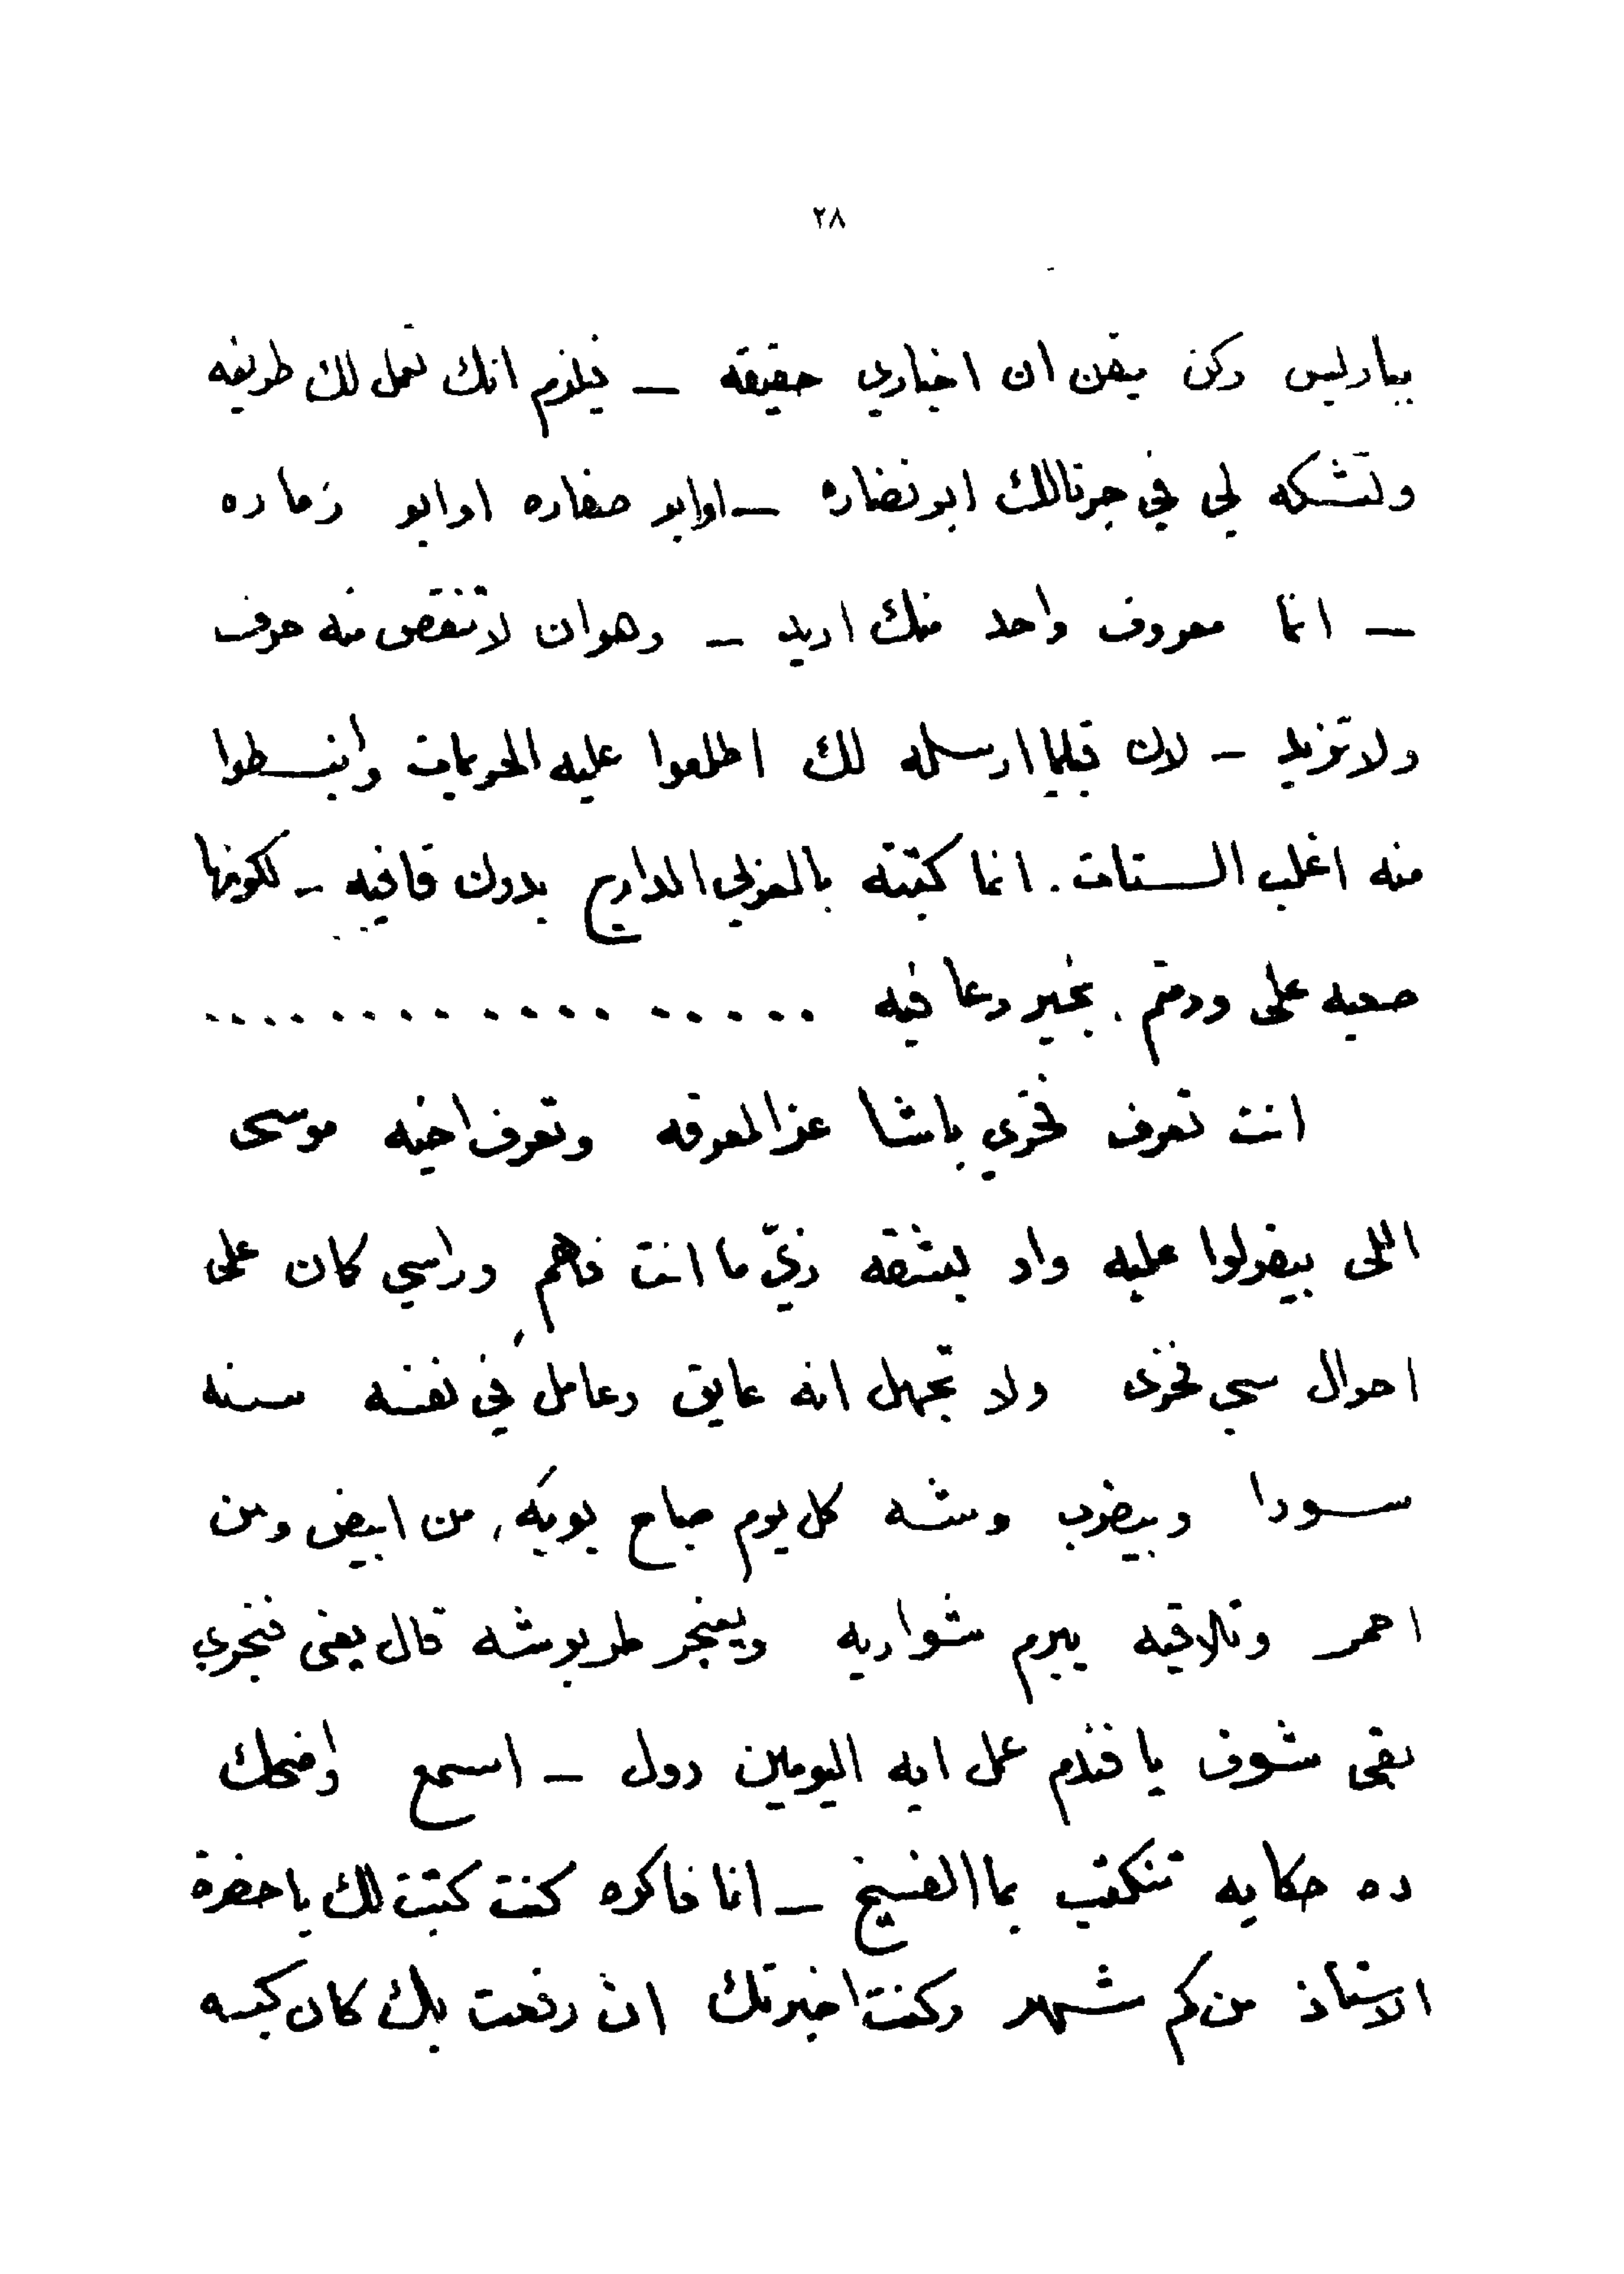 ٢٨
بباريس وكن متيقن ان اخباري حقيقه — فيلزم انك تعمل لك طريقه
وتشكه لي في جرنالك ابو نضاره — او ابو صفاره او ابو زماره
— انما معروف واحد منك اريد — وهو ان لا تنقص منه حرف
ولا تزيد — لان قبلما ارسله لك اطلعوا عليه الحريمات وانبسطوا
منه اغلب الستات . انما كتبته بالعربي الدارج بدون قافيه — لكونها
صعبه على ودمتم . بخير وعافيه ..................
انت تعرف فخري باشا عز المعرفه وتعرف اخيه موسى
اللى بيقولوا عليه واد بشقه زيّ ما انت فاهم وراسي كان على
احوال سي فخرى ولا تجهل انه عايق وعامل في نفسه سنه
سودا وبيضرب وشه كل يوم صباح بويه ، من ابيض ومن
احمر وتلاقيه يبرم شواربه ويعنجر طربوشه قال يعنى فنجري
بقى شوف يا فندم عمل ايه اليومين دول — اسمع واضحك
ده حكايه تنكتب بما الفسيخ — انا فاكره كنت كتبت لك يا حضرة
الاستاذ من كم شهر وكنت اخبرتك ان رفعت بك كان كبسه